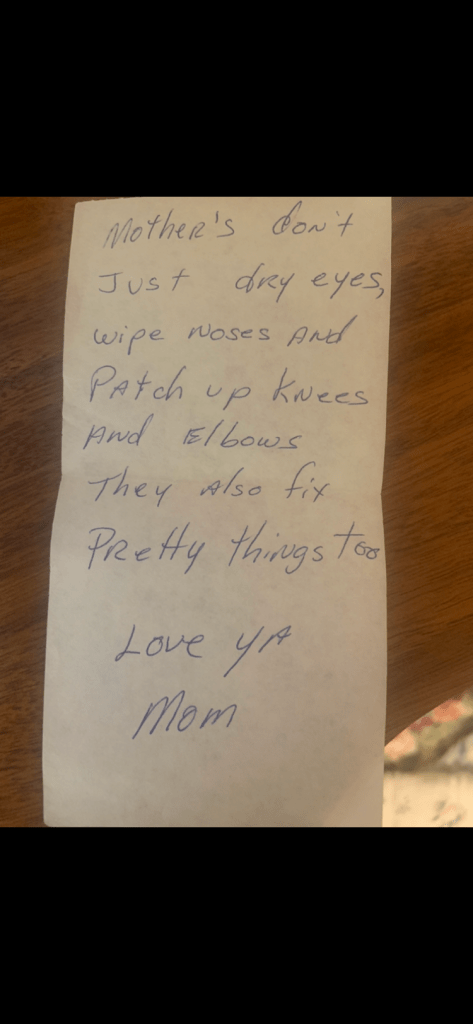 Mother's don't
Just dry eyes,
wipe noses And
Patch up knees
And Elbows
They Also fix
Pretty things too
Love ya
Mom